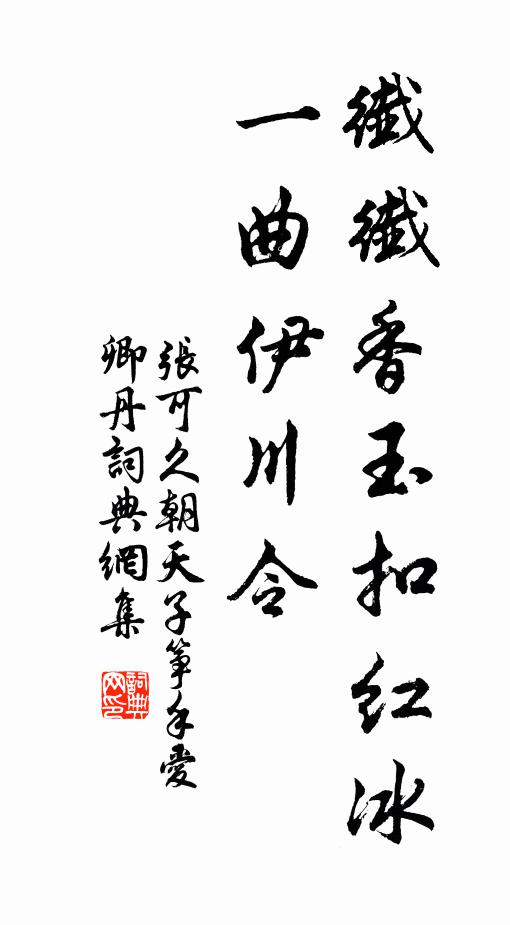 纖纖香玉扣红冰
一曲伊川令
張可久朝天子箏手愛
卿丹詞典網集
詞典
网印